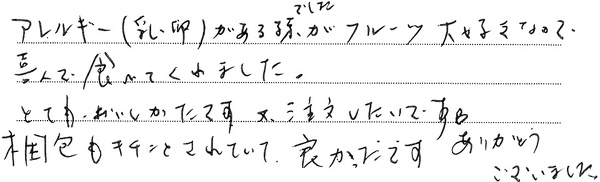 アレルギー(乳、卵)がある孫でしたがフルーツ大好きなので、
喜んで食べてくれました。
とてもおいしかたです 又、注文したいです。
梱包もキチンとされていて、良かったです ありがとう
ございました。